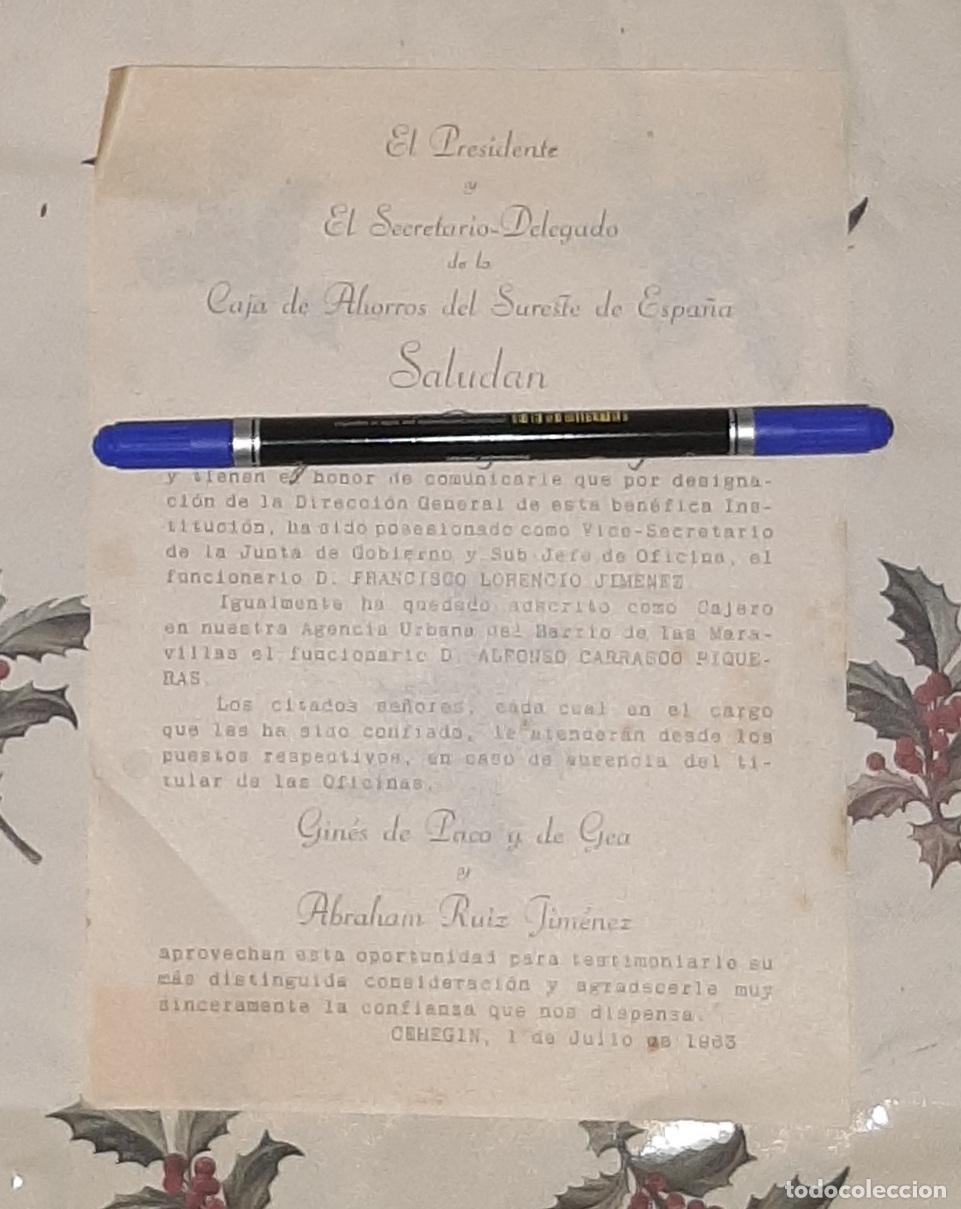 El Presidente
y
El Secretario-Delegado
de la
Caja de Ahorros del Sureste de España
Saludan
y tienen el honor de comunicarle que por designa-
ción de la Dirección General de esta benéfica Ins-
titución, ha sido posesionado como Vice-Secretario
de la Junta de Gobierno y Sub Jefe de Oficina, el
funcionario D. FRANCISCO LORENCIO JIMENEZ
Igualmente ha quedado adscrito como Cajero
en nuestra Agencia Urbana del Barrio de las Mara-
villas el funcionario D. ALFONSO CARRASCO PIQUE-
RAS.
Los citados señores, cada cual en el cargo
que les ha sido confiado, le atenderán desde los
puestos respectivos, en caso de ausencia del ti-
tular de las Oficinas.
Ginés de Paco y de Gea
y
Abraham Ruiz Jiménez
aprovechan esta oportunidad para testimoniarle su
más distinguida consideración y agradecerle muy
sinceramente la confianza que nos dispensa.
CEHEGIN, 1 de Julio de 1963
todocoleccion